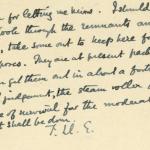 for letting me know. I should
through the remnants and
take some out to keep here for
poses. They are at present packed
get them out in about a fort
judgement, the steam roller a
of survival for the moderat
it shall be done.
T. E. E.